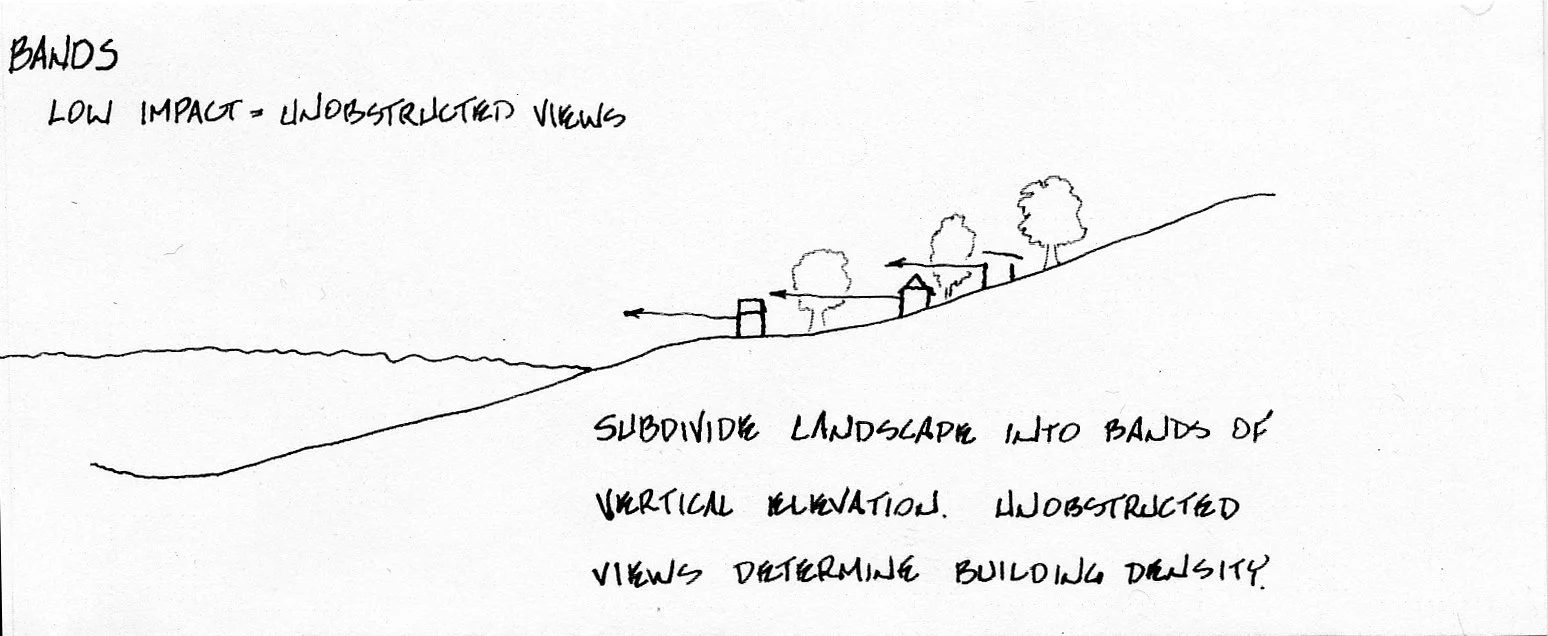 BANDS
LOW IMPACT = UNOBSTRUCTED VIEWS
SUBDIVIDE LANDSCAPE INTO BANDS OF
VERTICAL ELEVATION. UNOBSTRUCTED
VIEWS DETERMINE BUILDING DENSITY.